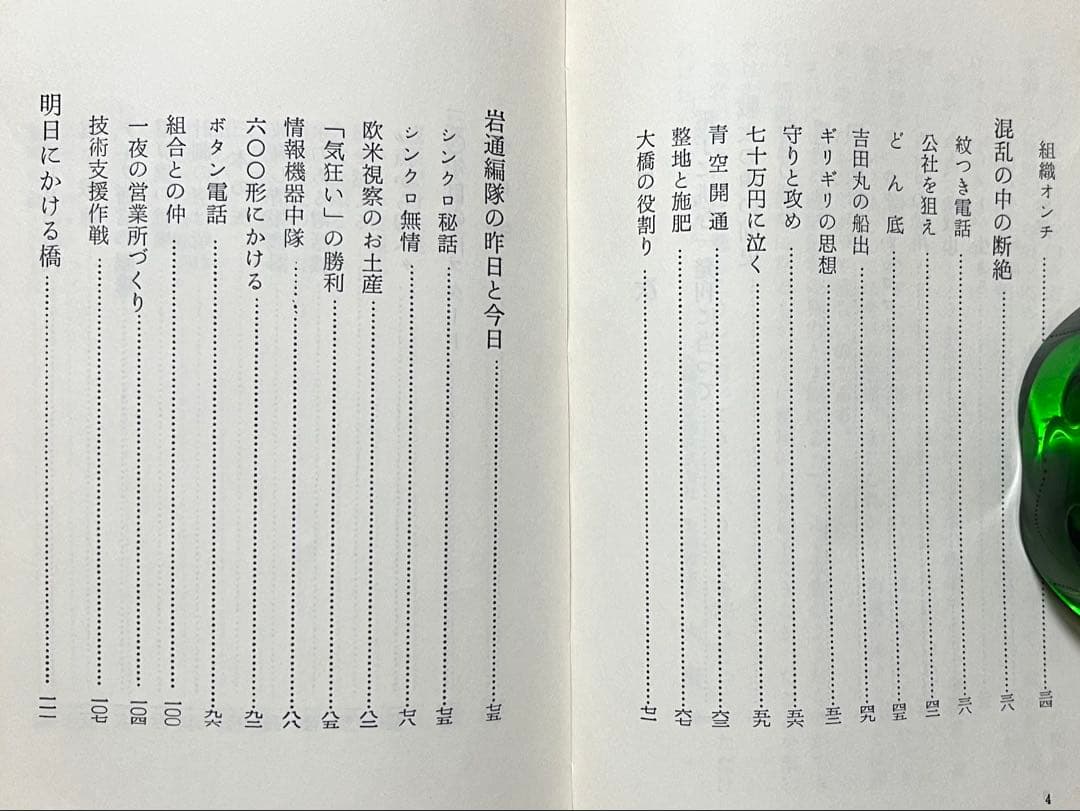 組織オンチ……三四
混乱の中の断絶……三八
紋つき電話……三八
公社を狙え……四二
どん底……四五
吉田丸の船出……四九
ギリギリの思想……五三
守りと攻め……五六
七十万円に泣く……五九
青空開通……六三
整地と施肥……六七
大橋の役割り……七一
4
岩通編隊の昨日と今日……七五
シンクロ秘話……七五
シンクロ無情……七八
欧米視察のお土産……八二
「気狂い」の勝利……八五
情報機器中隊……八八
六〇〇形にかける……九二
ボタン電話……九六
組合との仲……一〇〇
一夜の営業所づくり……一〇四
技術支援作戦……一〇七
明日にかける橋……一一一